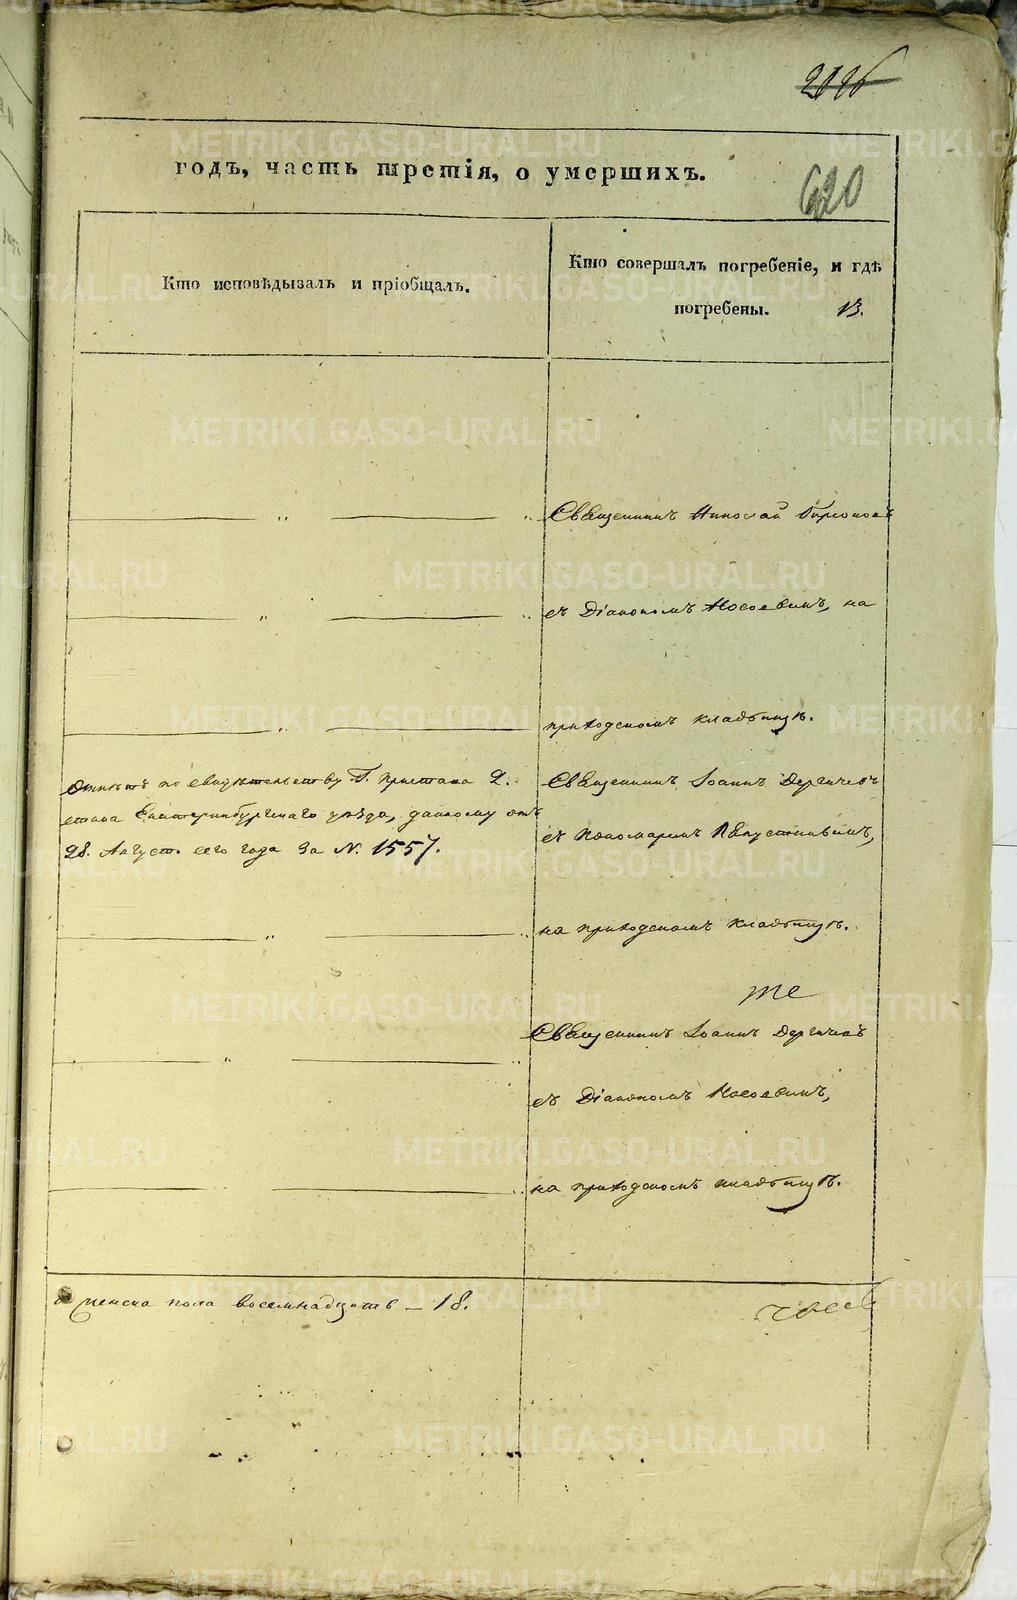 620
годъ, часть третія, о умершихъ.
Кто исповѣдывалъ и пріобщалъ.
Кто совершалъ погребеніе, и гдѣ
погребены. 13.
Священникъ Николай
съ Діакономъ Носовымъ, на
приходскомъ кладбищѣ.
Отпѣтъ по свидѣтельству Г. Пристава 2.
стана Екатеринбургскаго уѣзда, данному отъ
28. Август. сего года за №. 1557.
Священникъ Іоаннъ Дергачевъ
съ Пономаремъ
на приходскомъ кладбищѣ.
те
Священникъ Іоаннъ Дергачевъ
съ Діакономъ Носовымъ,
на приходскомъ кладбищѣ.
женска пола восемнадцать – 18.
METRIKI.GASO-URAL.RU